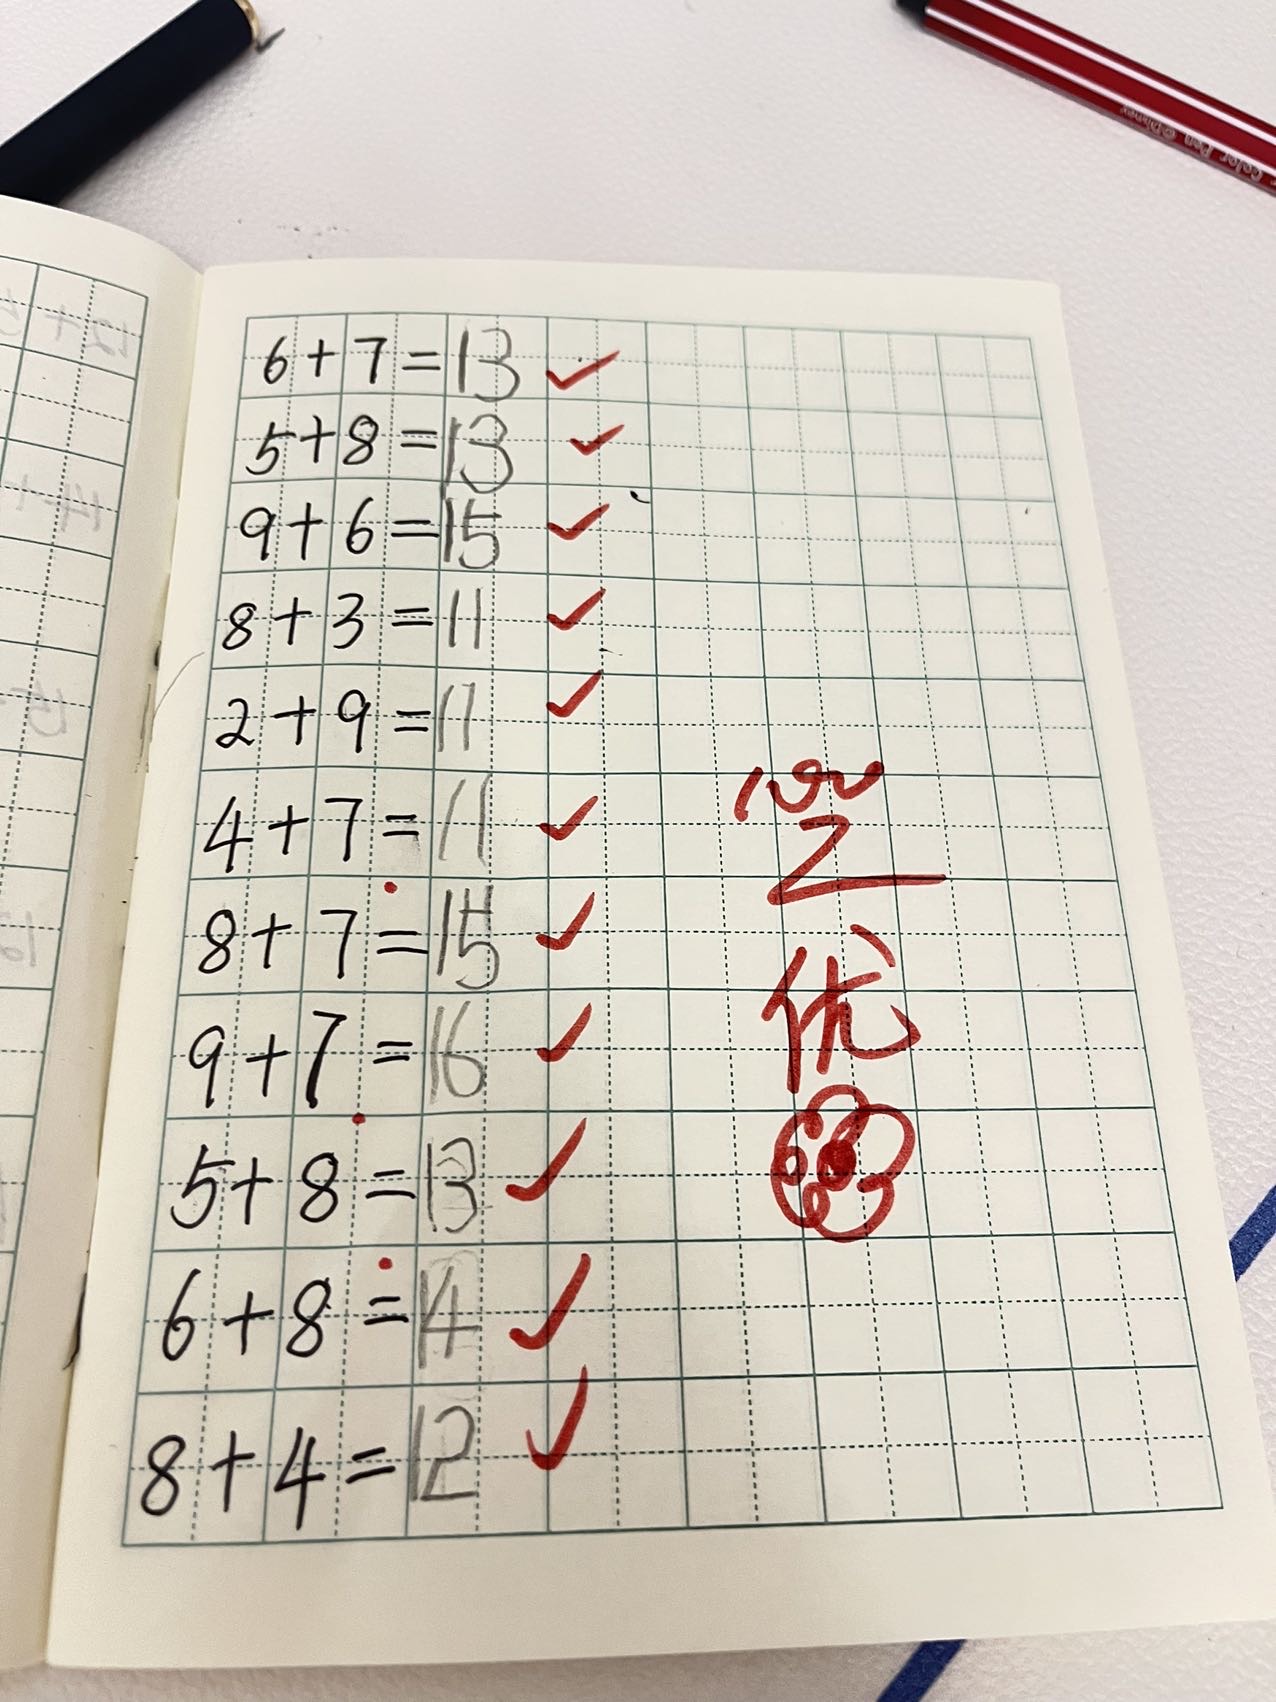 6+7=13
5+8=13
9+6=15
8+3=11
2+9=11
4+7=11
8+7=15
9+7=16
5+8=13
6+8=14
8+4=12
100
优
Color Pen ©Disney
12+5
14+
15